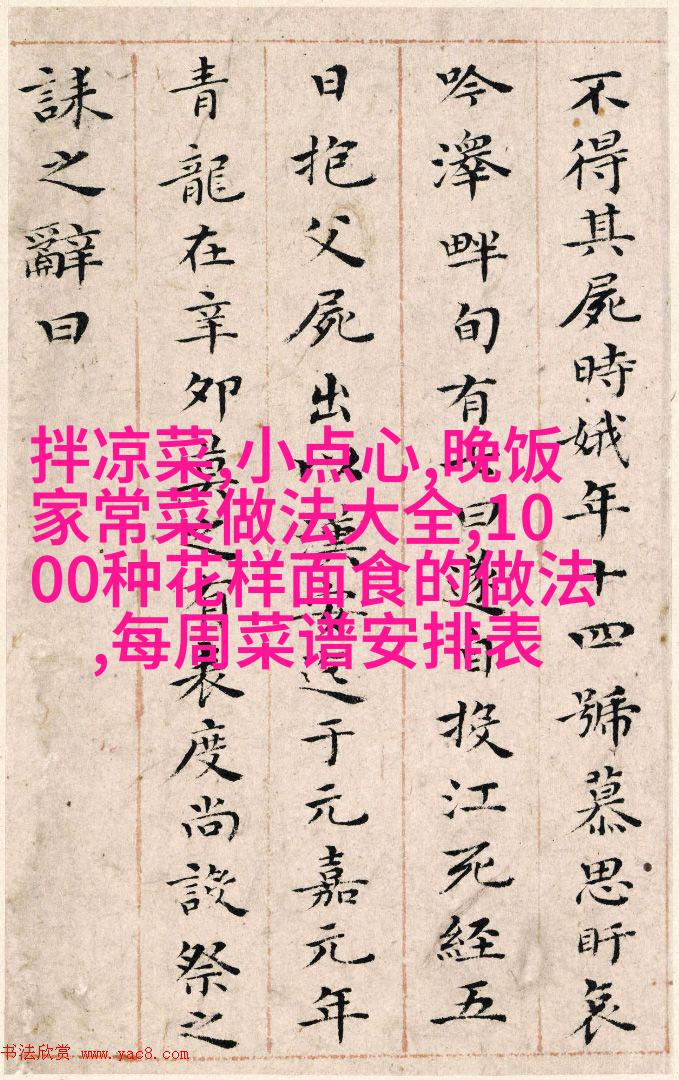 不得其屍時娥年十四號慕思盱哀
吟澤畔旬有七日遂自投江死經五
日抱父屍出以漢安迄于元嘉元年
青龍在辛卯莫之有表度尚設祭之
誄之辭曰
拌凉菜,小点心,晚饭
家常菜做法大全,10
00种花样面食的做法
,每周菜谱安排表
书法欣赏 www.yac8.com